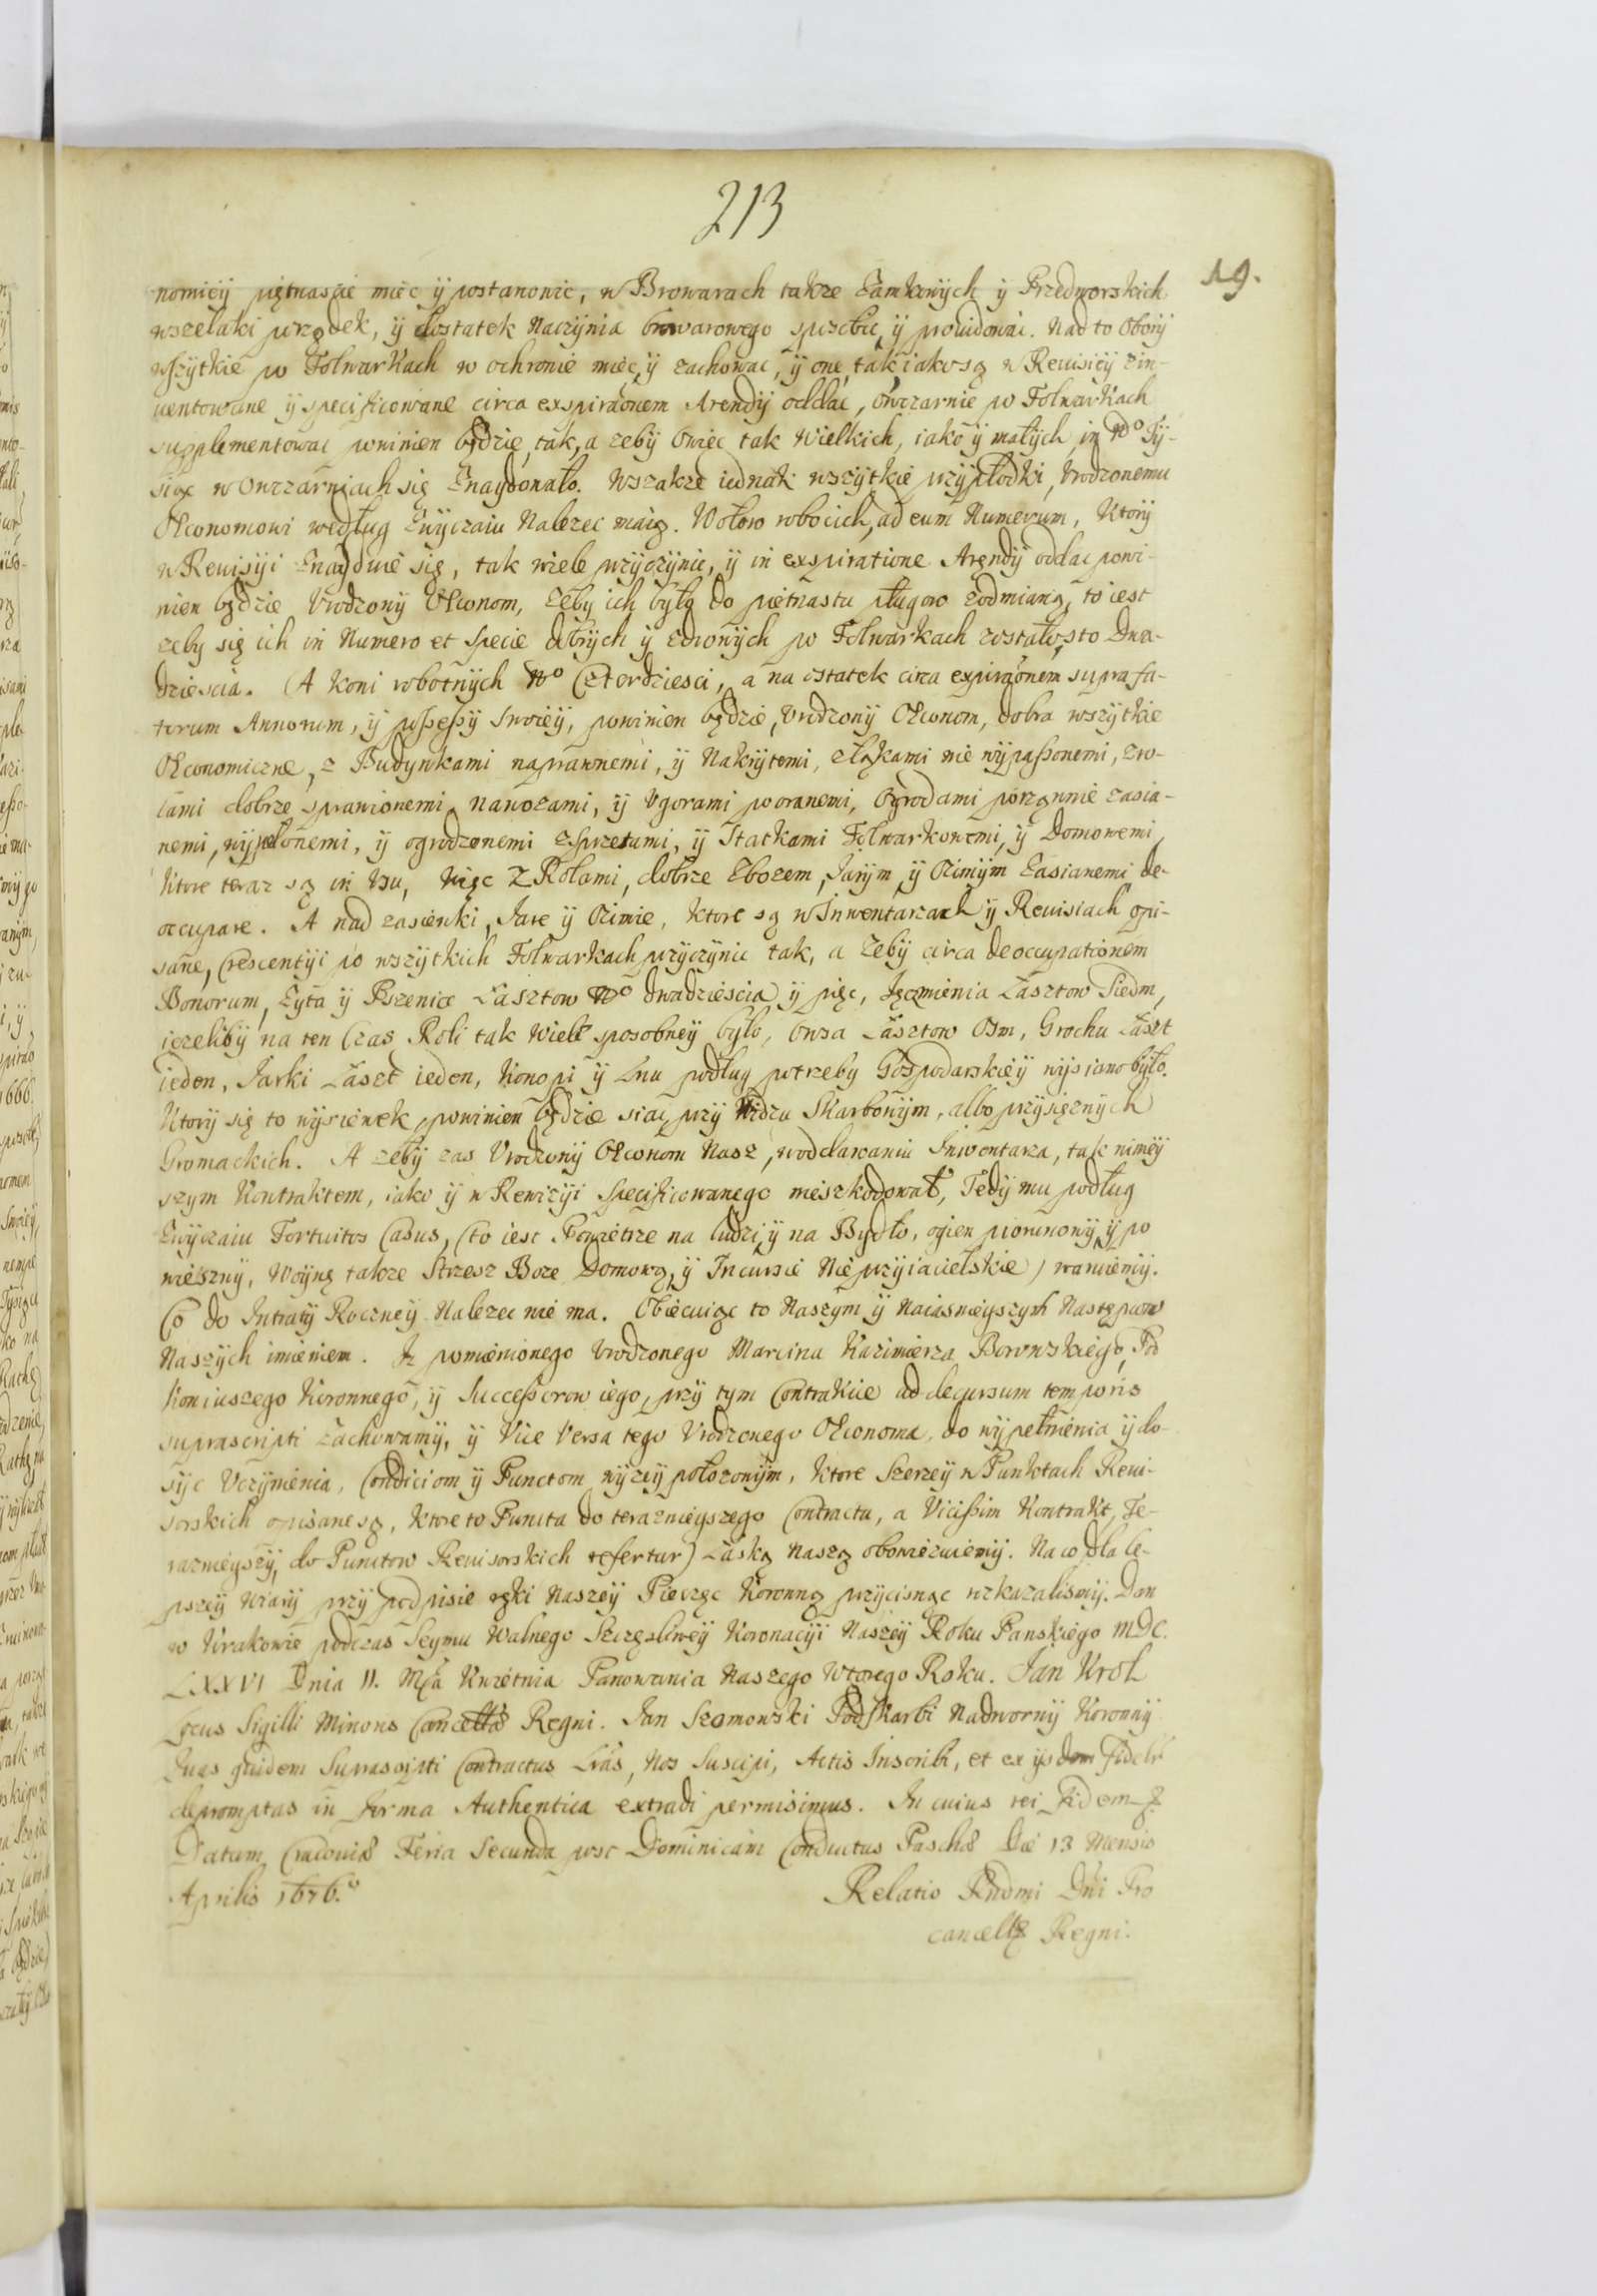 213
19.
nomiey piętnascie miec ÿ postanowic, w Browarach takze Zamkowÿch ÿ Przedworskich
wszelaki porządek, ÿ dostatek Naczÿnia browarowego sprzetu, ÿ prowidowac. Nad to Oborÿ
wszÿtkie po FolwarKach w ochronie miec, ÿ zachowac, ÿ one, tak iako są w Reuisieÿ zin-
uentowane ÿ specificowane circa expiraõnem Arendÿ oddac, owczarnie po FolwarKach
supplementowac powinien będzie, tak, a zebÿ Owiec tak Wielkich, iako ÿ małÿch, in No Tÿ-
siąc w Owczarniach się Znaÿdowało. Wszakze iednak wszÿtkie przÿpłodki, Vrodzonemu
OEconomowi według Zwÿczaiu Nalezec maią. Wołow robocich, ad eum Numerum, Ktorÿ
w Reuisÿi Znaÿduie się, tak wiele przÿczÿnic, ÿ in expiratione Arendÿ oddac powi-
nien będzie Vrodzonÿ OEconom, Zeby ich było do piętnastu pługow zodmianą, to iest
zeby się ich in Numero et specie dobrÿch ÿ zdrowÿch po Folwarkach zostało, sto Dwa-
dziescia. A Koni robotnÿch No Czterdziesci, a na ostatek circa expiraõnem suprafa-
torum Annorum, ÿ possessÿ Swoieÿ, powinien będzie, Vrodzonÿ OEconom, dobra wszÿtkie
OEconomiczne, z Budÿnkami naprawnemi, ÿ Nakrÿtemi, złąkami nie wÿpassonemi, zro-
lami dobrze sprawionemi, nawozami, ÿ Vgorami pooranemi, Ogrodami porządnie zasia-
nemi, wÿpełonemi, ÿ ogrodzonemi zsprzetami, ÿ Statkami Folwarkowemi, ÿ Domowemi,
Ktore teraz są in Vsu, Więc Z Rolami, dobrze Zbozem, Jarÿm, ÿ Ozimÿm Zasianemi de-
occupare. A nad zasiewki, Jare ÿ Ozimie, Ktore są w Inwentarzach ÿ Reuisiach opi-
sane, Crescentÿi po wszÿtkich Folwarkach przÿczÿnic tak, a Zebÿ circa deoccupationem
Bonorum, Zÿta ÿ Pszenice Łasztow No dwadziescia ÿ pięc, Jęczmienia Łasztow Siedm,
iezelibÿ na ten Czas Roli tak Wiele sposobneÿ było, Owsa Łasztow Osm, Grochu Łaszt
ieden, Jarki Łaszt ieden, Konopi ÿ Lnu podług potrzeby Gospodarskieÿ wÿsiano było.
Ktorÿ się to wÿsiewek, powinien będzie siac, przÿ Widzu Skarbowÿm, albo przÿsięznÿch
Gromadkich. A zebÿ zas Vrodzonÿ OEconom Nasz, woddawaniu Inwentarza, tak nineÿ
szym Kontraktem, iako ÿ w Rewizÿi specificowanego nieszkodował, Tedÿ mu podług
Zwÿczaiu Fortuitos Casus, (to iest Powietrze na ludzi, ÿ na Bydło, ogien piorunowÿ, ÿ po
wieszny, Woÿnę takze Strzesz Boze Domową, ÿ Incursie Nieprzÿiacielskie) waruiemÿ.
Co do Intratÿ Roczneÿ Nalezec nie ma. Obiecuiąc to Naszym ÿ Naiasnieÿszych Następcow
Naszÿch imieniem. Iz pomienionego Vrodzonego Marcina Kazimierza Borowskiego, Pod
Koniuszego Koronnego, ÿ Successorow iego, przÿ tym Contrakcie ad decursum temporis
suprascripti zachowamÿ, ÿ Vice Versa tego Vrodzonego OEconoma, do wÿpełnienia ÿ do-
sÿc Vczÿnienia, Condiciom ÿ Punctom wÿzeÿ położonÿm, Ktore Szerzeÿ w Punktach Reui-
sorskich opisane są, Ktore to Puncta do teraznieÿszego Contractu, a Vicissim Kontrakt, Te-
raznieÿszÿ, do Punctow Reuisorskich refertur) Łaską Naszą obowiezuiemÿ. Na co dla le-
pszeÿ Wiarÿ przÿ podpisie ręki Naszeÿ Pieczęc Koronną przÿcisnąc rozkazalismÿ. Dan
w Krakowie podczas Seymu Walnego Szczęsliweÿ Koronacÿi Naszeÿ Roku Panskiego MDC.
LXXVI Dnia 11. Mca Kwietnia Panowania Naszego Wtorego Roku. Jan Krol
Locus Sigilli Minoris Cancellæ Regni. Jan Szomowski Podskarbi Nadwornÿ Koronnÿ
Quas quidem Suprascripti Contractus Lras, Nos Suscipi, Actis Inscribi, et ex ijsdem Fidelr
depromptas in Forma Authentica extradi permisimus. In cuius rei Fidem
Datum Cracouiæ Feria Secunda post Dominicam Conductus Paschæ Die 13 Mensis
Aprilis 1676.o
Relatio Rndmi Dni Pro
cancell Regni.